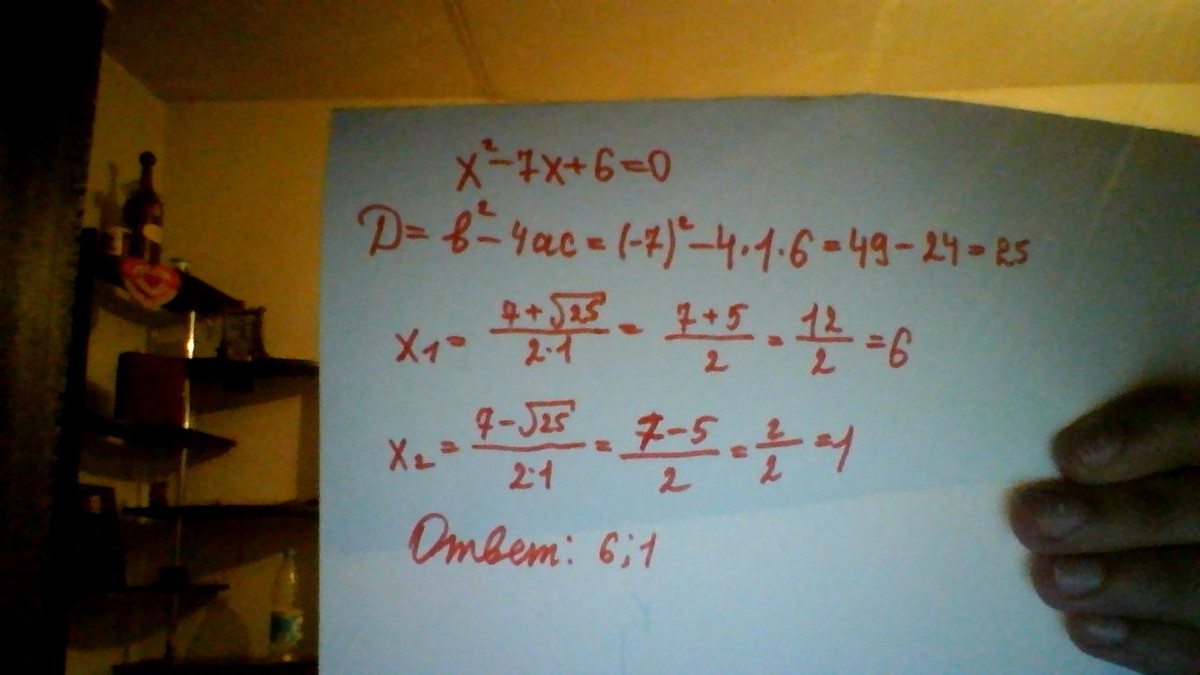 x² - 7x + 6 = 0
D = b² - 4ac = (-7)² - 4·1·6 = 49 - 24 = 25
x₁ = (7 + √25)/(2·1) = (7 + 5)/2 = 12/2 = 6
x₂ = (7 - √25)/(2·1) = (7 - 5)/2 = 2/2 = 1
Ответ: 6; 1